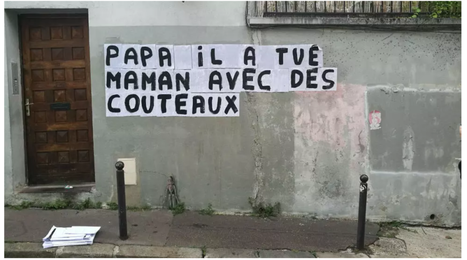 PAPA iL A TUÉ
MAMAN AVEC DES
COUTEAUX